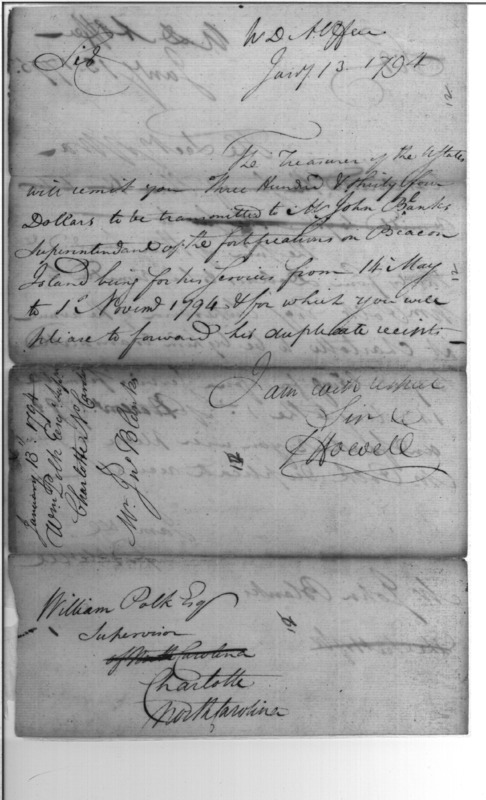 W D A Office
Jany 13 1794
Sir
The Treasurer of the UStates
will remit you Three Hundred & thirty four
Dollars to be transmitted to Mr John Blanks
Superintendand of the fortifications on Beacon
Island being for his services from 14 May
to 1st Novemr 1794 & for which you will
please to forward his duplicate receipts
I am with respect
Sir &c
J Howell
January 13: 1794
Wm Polk Esq
Charlotte No Caro
Mr Jno Blanks
William Polk Esq
Supervisor
of North Carolina
Charlotte
North Carolina